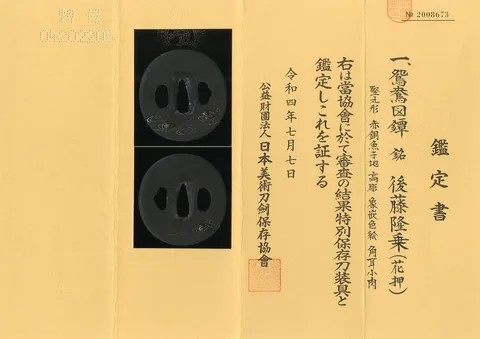 № 2008673
鑑定書
一、鴛鴦図鐔 銘 後藤隆乗(花押)
竪丸形 赤銅魚子地 高彫 象嵌色絵 角耳小肉
右は當協會に於て審査の結果特別保存刀装具と
鑑定しこれを証する
令和四年七月七日
公益財團法人 日本美術刀剣保存協會